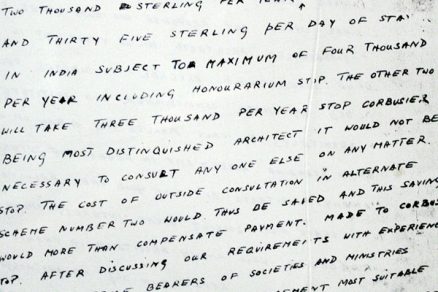 TWO THOUSAND STERLING PER
AND THIRTY FIVE STERLING PER DAY OF STAY
IN INDIA SUBJECT TO MAXIMUM OF FOUR THOUSAND
PER YEAR INCLUDING HONOURARIUM STOP. THE OTHER TWO
WILL TAKE THREE THOUSAND PER YEAR STOP CORBUSIER
BEING MOST DISTINGUISHED ARCHITECT IT WOULD NOT BE
NECESSARY TO CONSULT ANY ONE ELSE ON ANY MATTER.
STOP. THE COST OF OUTSIDE CONSULTATION IN ALTERNATE
SCHEME NUMBER TWO WOULD THUS BE SAVED AND THIS SAVING
WOULD MORE THAN COMPENSATE PAYMENT. MADE TO CORBUS
TOP. AFTER DISCUSSING OUR REQUIREMEITS WITH EXPERIENC
BEARERS OF SOCIETIES AND MINISTRIES
MOST SUITABLE